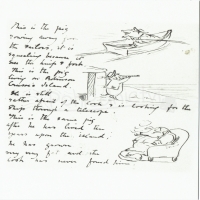 This is the pig
rowing away from
the sailors, it is
squealing because it
sees the knife & fork.
This is the pig
living on Robinson
Crusoe's Island.
He is still
rather afraid of the cook & is looking for the
ship through a telescope.
This is the same pig
after he has lived ten
years upon the island,
He has grown
very very fat and the
cook has never found him